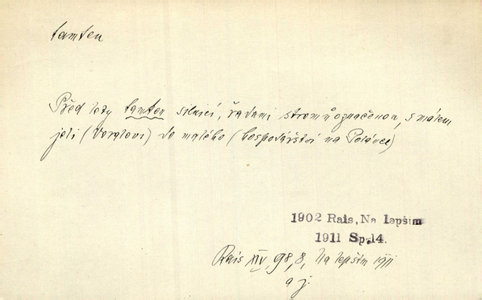 tamten
Před lety tamten silnicí, řadami stromů označenou, s mátem
jeli (Vorlovi) do malého (hospodářství na Polánce)
1902 Rais, Na lepším
1911 Sp.14.
Rais XIV, 98, 8, Na lepším 1911
a j.